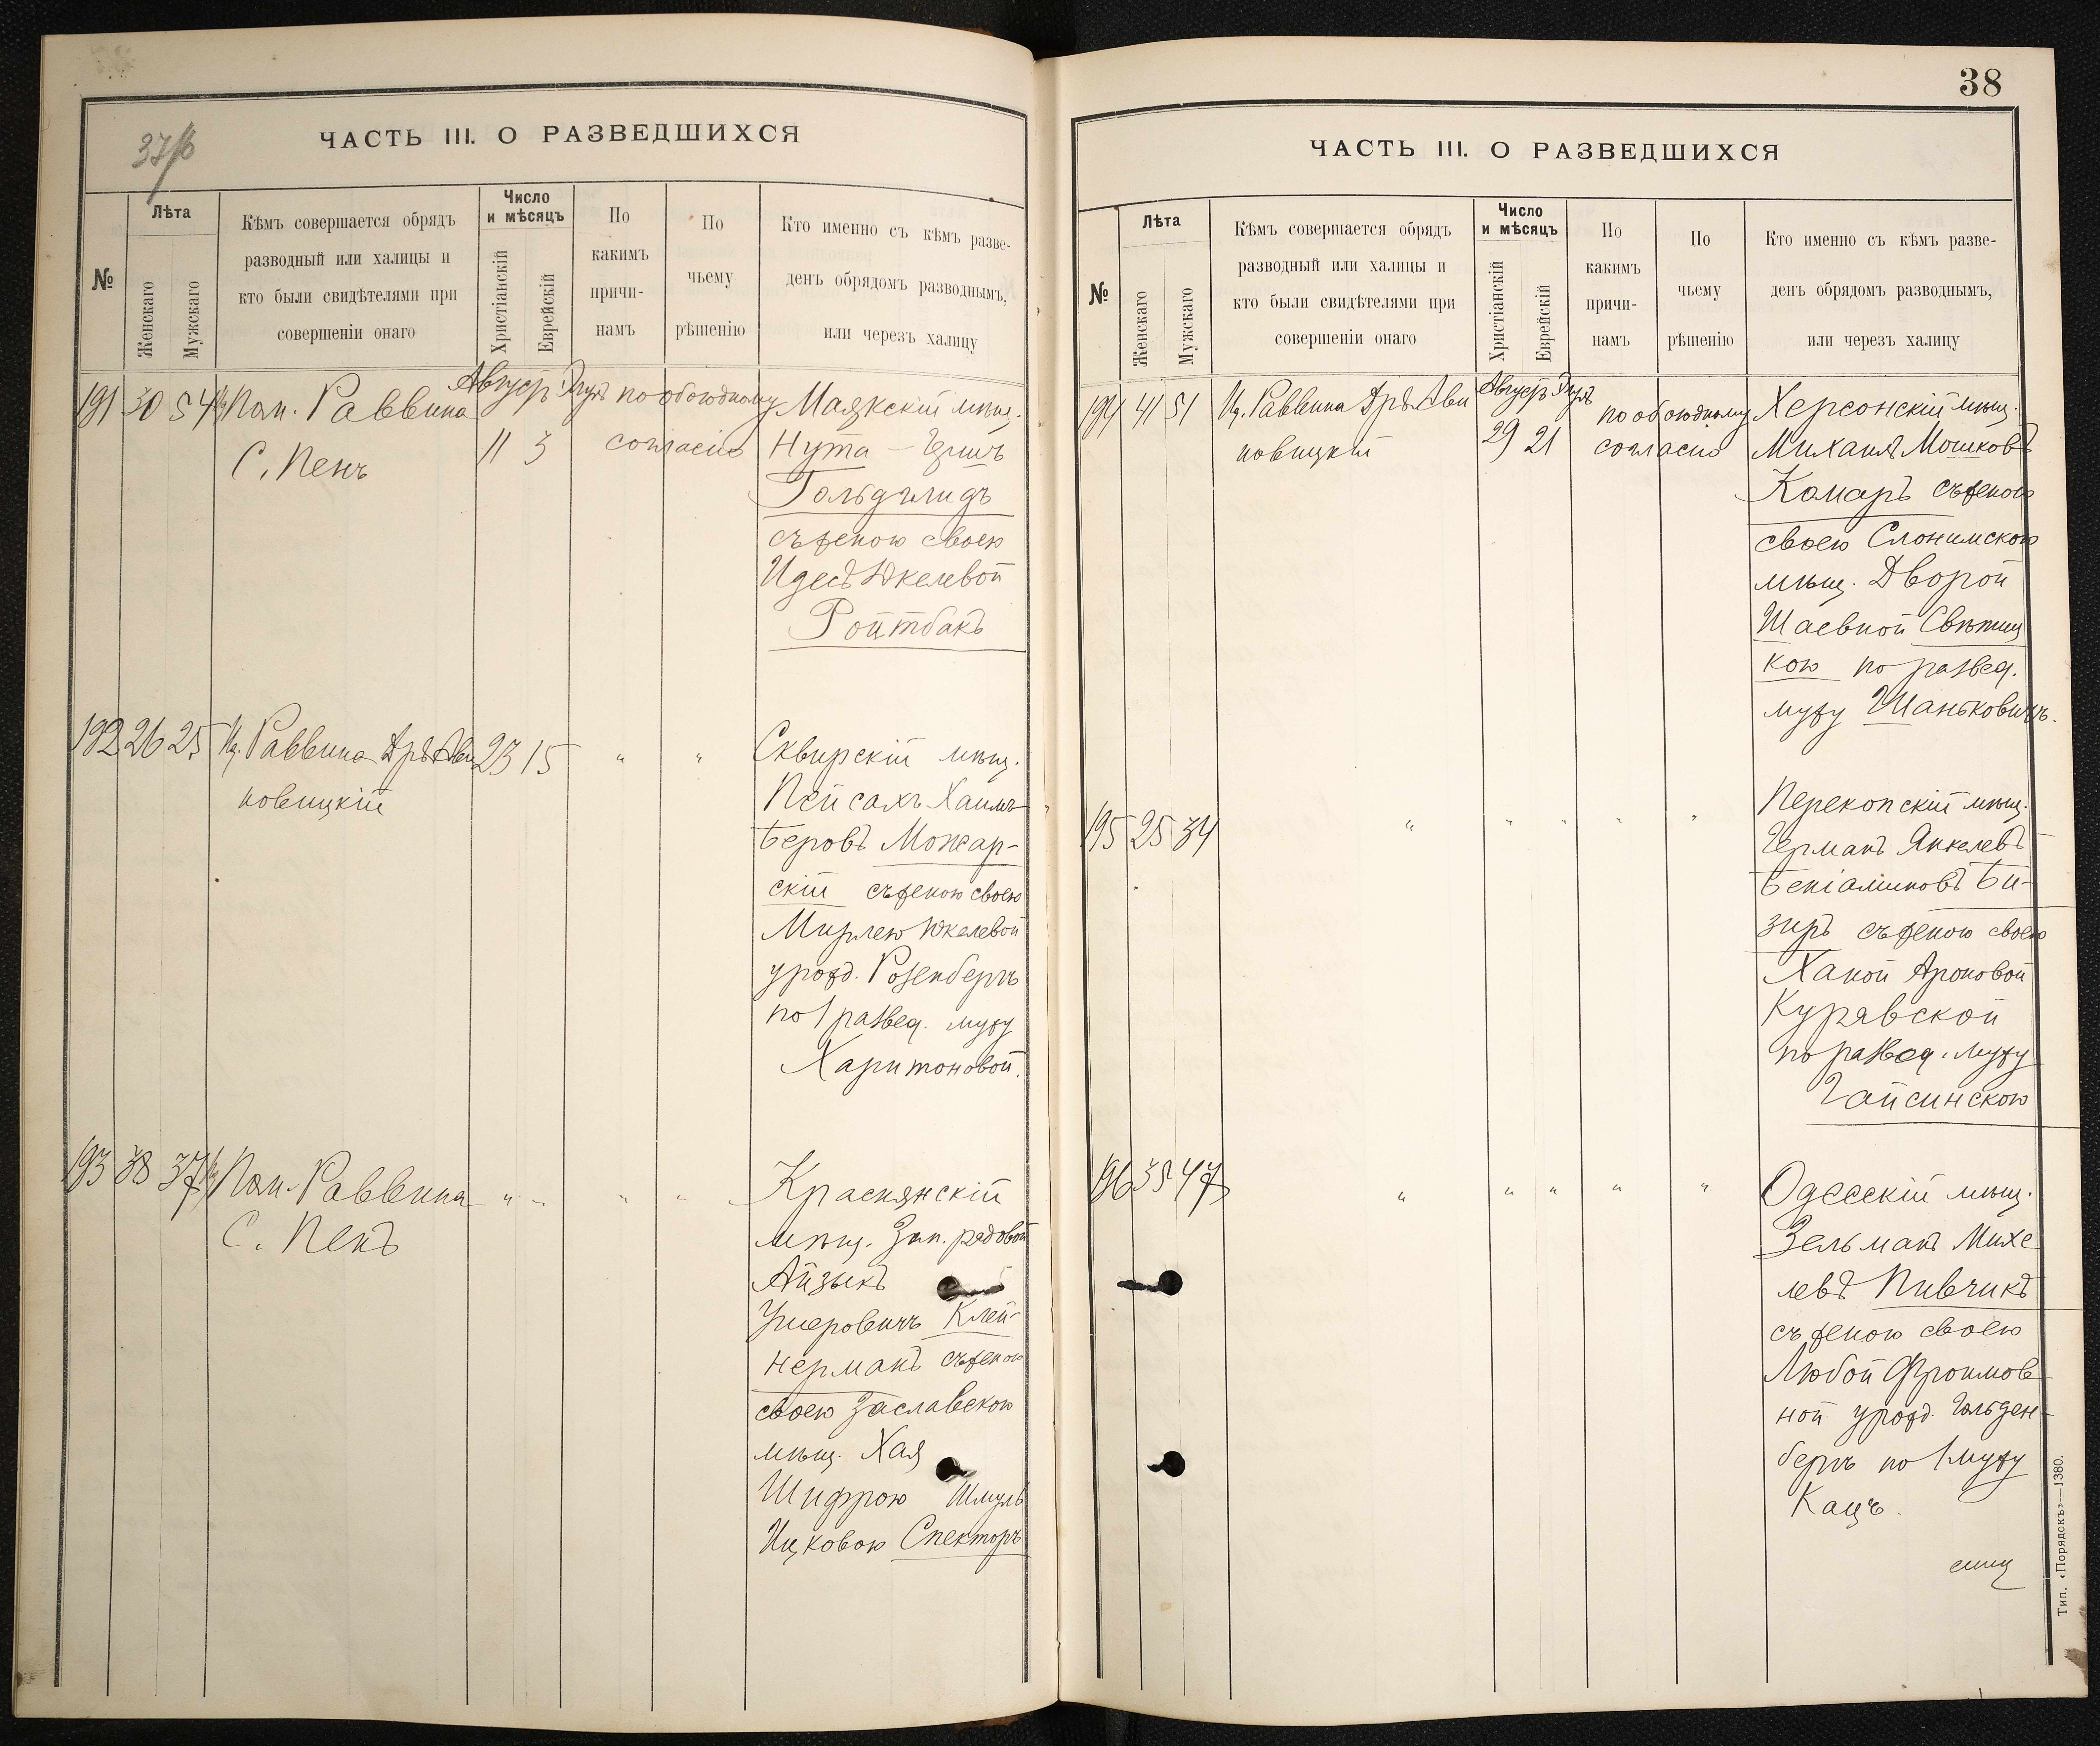 37/б
ЧАСТЬ III. О РАЗВЕДШИХСЯ
№
Лѣта
Женскаго
Мужскаго
Кѣмъ совершается обрядъ
разводный или халицы и
кто были свидѣтелями при
совершеніи онаго
Число
и мѣсяцъ
Христіанскій
Еврейскій
По
какимъ
причи-
намъ
По
чьему
рѣшенію
Кто именно съ кѣмъ разве-
денъ обрядомъ разводнымъ,
или черезъ халицу
191 30 54 Пом. Раввина Август Элул по обоюдному Маякскій мѣщ.
С. Пенъ 11 3 согласію Нута - Герш
Гольдшмидъ
съ женою своею
Идес Юкелевой
Ройтбакъ
192 26 25 Ид. Раввина Дръ Ави 23 15 " " Сквирскій мѣщ.
новицкій Пейсахъ Хаимъ
БеровъМожар-
скій съ женою своею
Мирлею Юкелевой
урожд. Розенбергъ
по 1 развед. мужу
Харитоновой.
193 38 37 Пом. Раввина " " " " Краснянскій
С. Пенъ мѣщ. Зап. рядовой
Айзыкъ
Ушеровичъ Клей-
нерманъ съ женою
своею Заславскою
мѣщ. Хая
Шифрою Шмуль
Ицковою Спекторъ
38
ЧАСТЬ III. О РАЗВЕДШИХСЯ
№
Лѣта
Женскаго
Мужскаго
Кѣмъ совершается обрядъ
разводный или халицы и
кто были свидѣтелями при
совершеніи онаго
Число
и мѣсяцъ
Христіанскій
Еврейскій
По
какимъ
причи-
намъ
По
чьему
рѣшенію
Кто именно съ кѣмъ разве-
денъ обрядомъ разводнымъ,
или черезъ халицу
194 41 51 Ид. Раввина Дръ Ави Август Элул по обоюдному Херсонскій мѣщ.
новицкій 29 21 согласію Михаил Мошковъ
Комаръ съ женою
своею Слонимскою
мѣщ. Дворой
Шаевной Свѣтиц
кою по развед.
мужу Шаньковичъ.
195 25 34 " " " " " Перекопскій мѣщ.
Германъ Янкелевъ
Беніаминовъ Би-
зиръ съ женою своею
Ханой Ароновой
Курявской
по развед. мужу
Гайсинскою
196 35 47 " " " " " Одесскій мѣщ.
Зельманъ Михе
левъ Пивчикъ
съ женою своею
Любой Фроимов
ной урожд. Гольден-
бергъ по 1 мужу
Кацъ.
Тип. «Порядокъ»—1380.